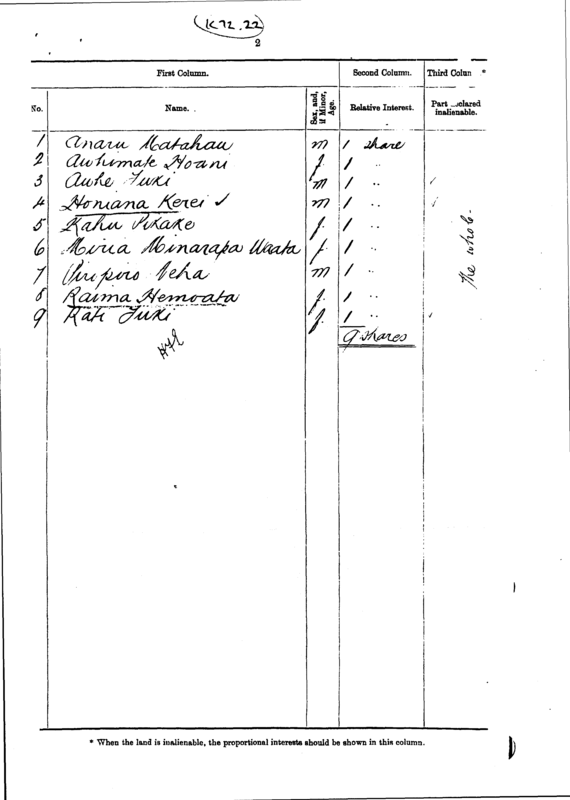 (K72.22)
2
First Column. Second Column. Third Colun *
No. Name. Sex, and, if Minor, Age. Relative Interest. Part clared inalienable.
1 Anaru Matahau m 1 share
2 Awhimate Hoani f. 1 "
3 Auhe Tuki m 1 "
4 Honiana Kerei ✓ m 1 "
5 Kahu Pikake f. 1 "
6 Miria Minarapa Waata f. 1 "
7 Piripiro Neha m 1 "
8 Raima Hemoata f. 1 "
9 Rati Tuki f. 1 "
The whole.
9 shares
* When the land is inalienable, the proportional interests should be shown in this column.